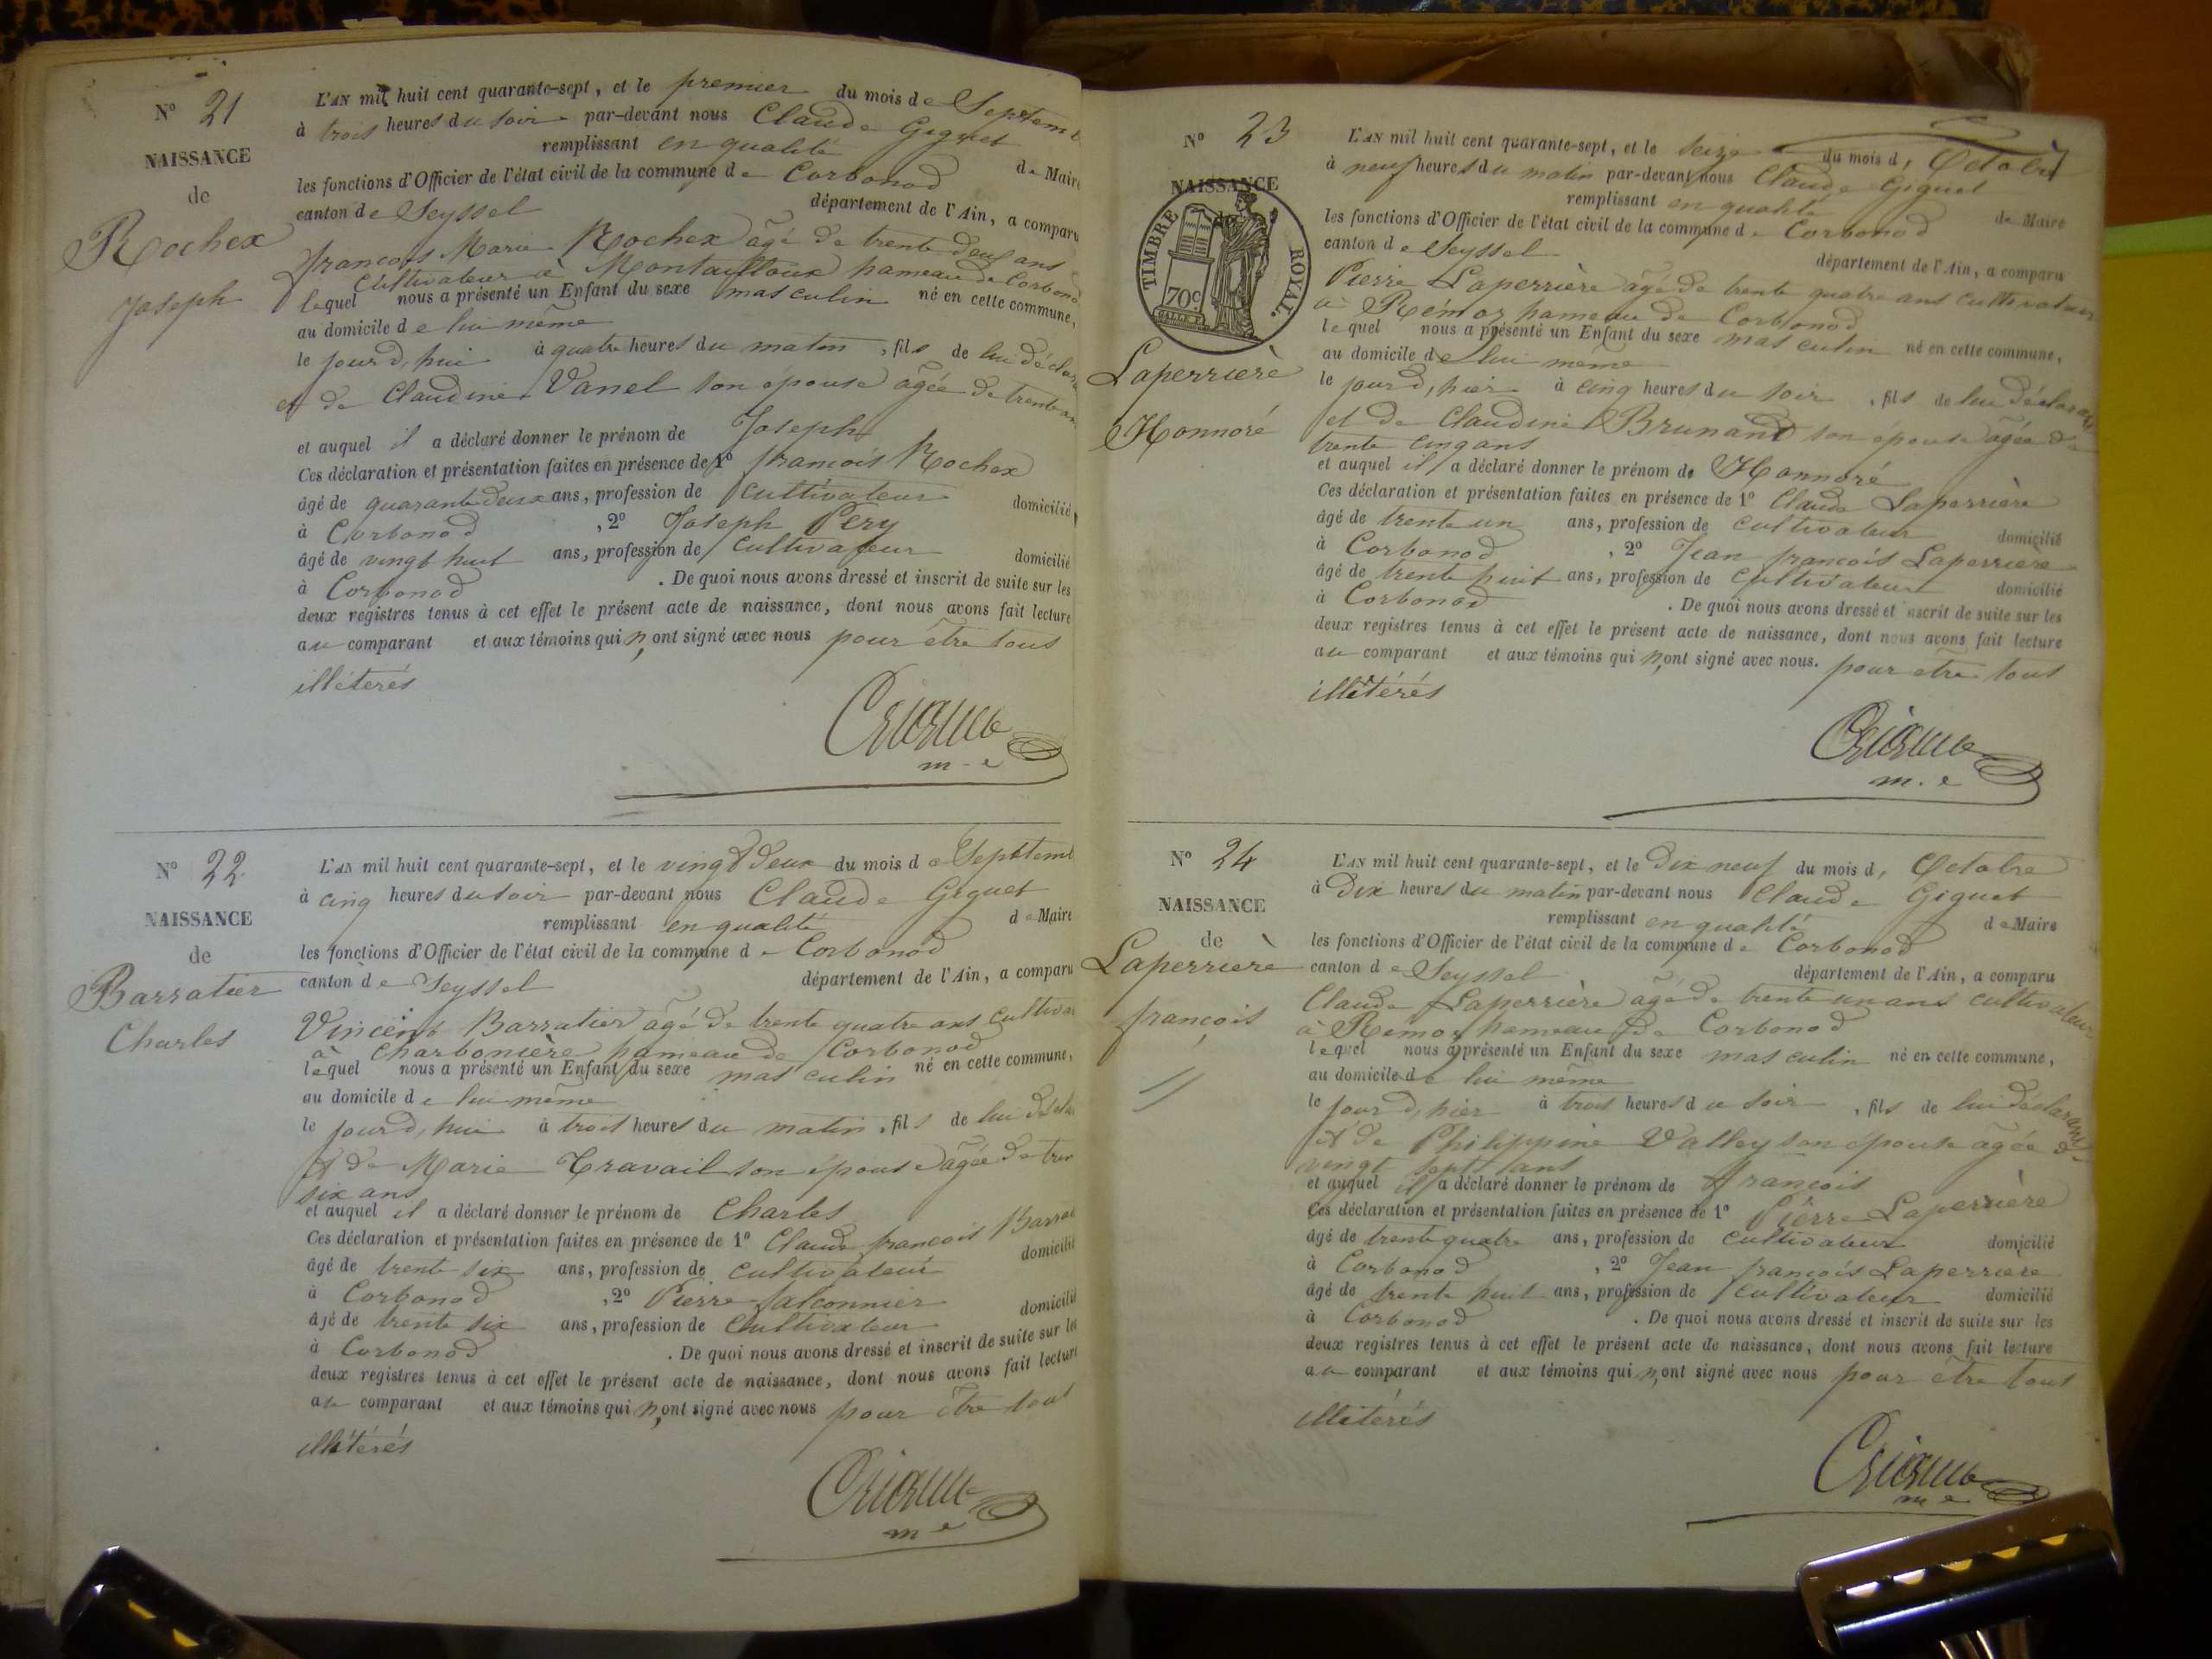 N° 21
NAISSANCE
de
Rochex
Joseph
L'AN mil huit cent quarante-sept, et le premier du mois de Septem
à trois heures du soir par-devant nous Claude Giguet
remplissant en qualité de Maire
les fonctions d'Officier de l'état civil de la commune de Corbonod
canton de Seyssel département de l'Ain, a comparu
françois Marie Rochex âgé de trente deux ans
Cultivateur à Montailloux hameau de Corbonod
lequel nous a présenté un Enfant du sexe masculin né en cette commune,
au domicile de lui même
le jourd,hui à quatre heures du matin, fils de lui déclara
et de Claudine Vanel son épouse âgée de trente an
et auquel il a déclaré donner le prénom de Joseph
Ces déclaration et présentation faites en présence de 1° françois Rochex
âgé de quarante deux ans, profession de cultivateur domicilié
à Corbonod, 2° Joseph Pery
âgé de vingt huit ans, profession de cultivateur domicilié
à Corbonod. De quoi nous avons dressé et inscrit de suite sur les
deux registres tenus à cet effet le présent acte de naissance, dont nous avons fait lecture
au comparant et aux témoins qui n,ont signé avec nous pour être tous
illéterés
m. e
N° 22
NAISSANCE
de
Barratier
Charles
L'AN mil huit cent quarante-sept, et le vingt deux du mois de Septtemb
à cinq heures du soir par-devant nous Claude Giguet
remplissant en qualité de Maire
les fonctions d'Officier de l'état civil de la commune de Corbonod
canton de Seyssel département de l'Ain, a comparu
Vincent Barratier âgé de trente quatre ans cultiva
à Charbonière hameau de Corbonod
lequel nous a présenté un Enfant du sexe masculin né en cette commune,
au domicile de lui même
le jourd,hui à trois heures du matin, fils de lui décla
et de Marie Travail son épouse âgée de tren
six ans
et auquel il a déclaré donner le prénom de Charles
Ces déclaration et présentation faites en présence de 1° Claude françois Barrat
âgé de trente six ans, profession de cultivateur domicilié
à Corbonod, 2° Pierre falconnier
âgé de trente six ans, profession de Cultivateur domicilié
à Corbonod. De quoi nous avons dressé et inscrit de suite sur les
deux registres tenus à cet effet le présent acte de naissance, dont nous avons fait lecture
au comparant et aux témoins qui n,ont signé avec nous pour être tous
illitérés
m e
N° 23
NAISSANCE
de
TIMBRE ROYAL.
70c
Laperrière
Honnoré
L'AN mil huit cent quarante-sept, et le seize du mois d, Octobre
à neuf heures du matin par-devant nous Claude Giguet
remplissant en qualité de Maire
les fonctions d'Officier de l'état civil de la commune de Corbonod
canton de Seyssel département de l'Ain, a comparu
Pierre Laperrière âgé de trente quatre ans cultivateur
à Rémoz hameau de Corbonod
lequel nous a présenté un Enfant du sexe masculin né en cette commune,
au domicile de lui même
le jourd,hier à cinq heures du soir, fils de lui déclarant
et de Claudine Brunand son épouse âgée de
trente cinq ans
et auquel il a déclaré donner le prénom de Honnoré
Ces déclaration et présentation faites en présence de 1° Claude Laperrière
âgé de trente un ans, profession de cultivateur domicilié
à Corbonod, 2° Jean françois Laperrière
âgé de trente huit ans, profession de cultivateur domicilié
à Corbonod. De quoi nous avons dressé et inscrit de suite sur les
deux registres tenus à cet effet le présent acte de naissance, dont nous avons fait lecture
au comparant et aux témoins qui n,ont signé avec nous. pour être tous
illitérés
m. e
N° 24
NAISSANCE
de
Laperrière
françois
L'AN mil huit cent quarante-sept, et le dix neuf du mois d, Octobre
à dix heures du matin par-devant nous Claude Giguet
remplissant en qualité de Maire
les fonctions d'Officier de l'état civil de la commune de Corbonod
canton de Seyssel département de l'Ain, a comparu
Claude Laperrière âgé de trente un ans cultivateur
à Remoz hameau de Corbonod
lequel nous a présenté un Enfant du sexe masculin né en cette commune,
au domicile de lui même
le jourd,hier à trois heures du soir, fils de lui déclarant
et de Philippine Valley son épouse âgée de
vingt sept ans
et auquel il a déclaré donner le prénom de françois
Ces déclaration et présentation faites en présence de 1° Pierre Laperrière
âgé de trente quatre ans, profession de cultivateur domicilié
à Corbonod, 2° Jean françois Laperrière
âgé de trente huit ans, profession de cultivateur domicilié
à Corbonod. De quoi nous avons dressé et inscrit de suite sur les
deux registres tenus à cet effet le présent acte de naissance, dont nous avons fait lecture
au comparant et aux témoins qui n,ont signé avec nous pour être tous
illitérés
m e